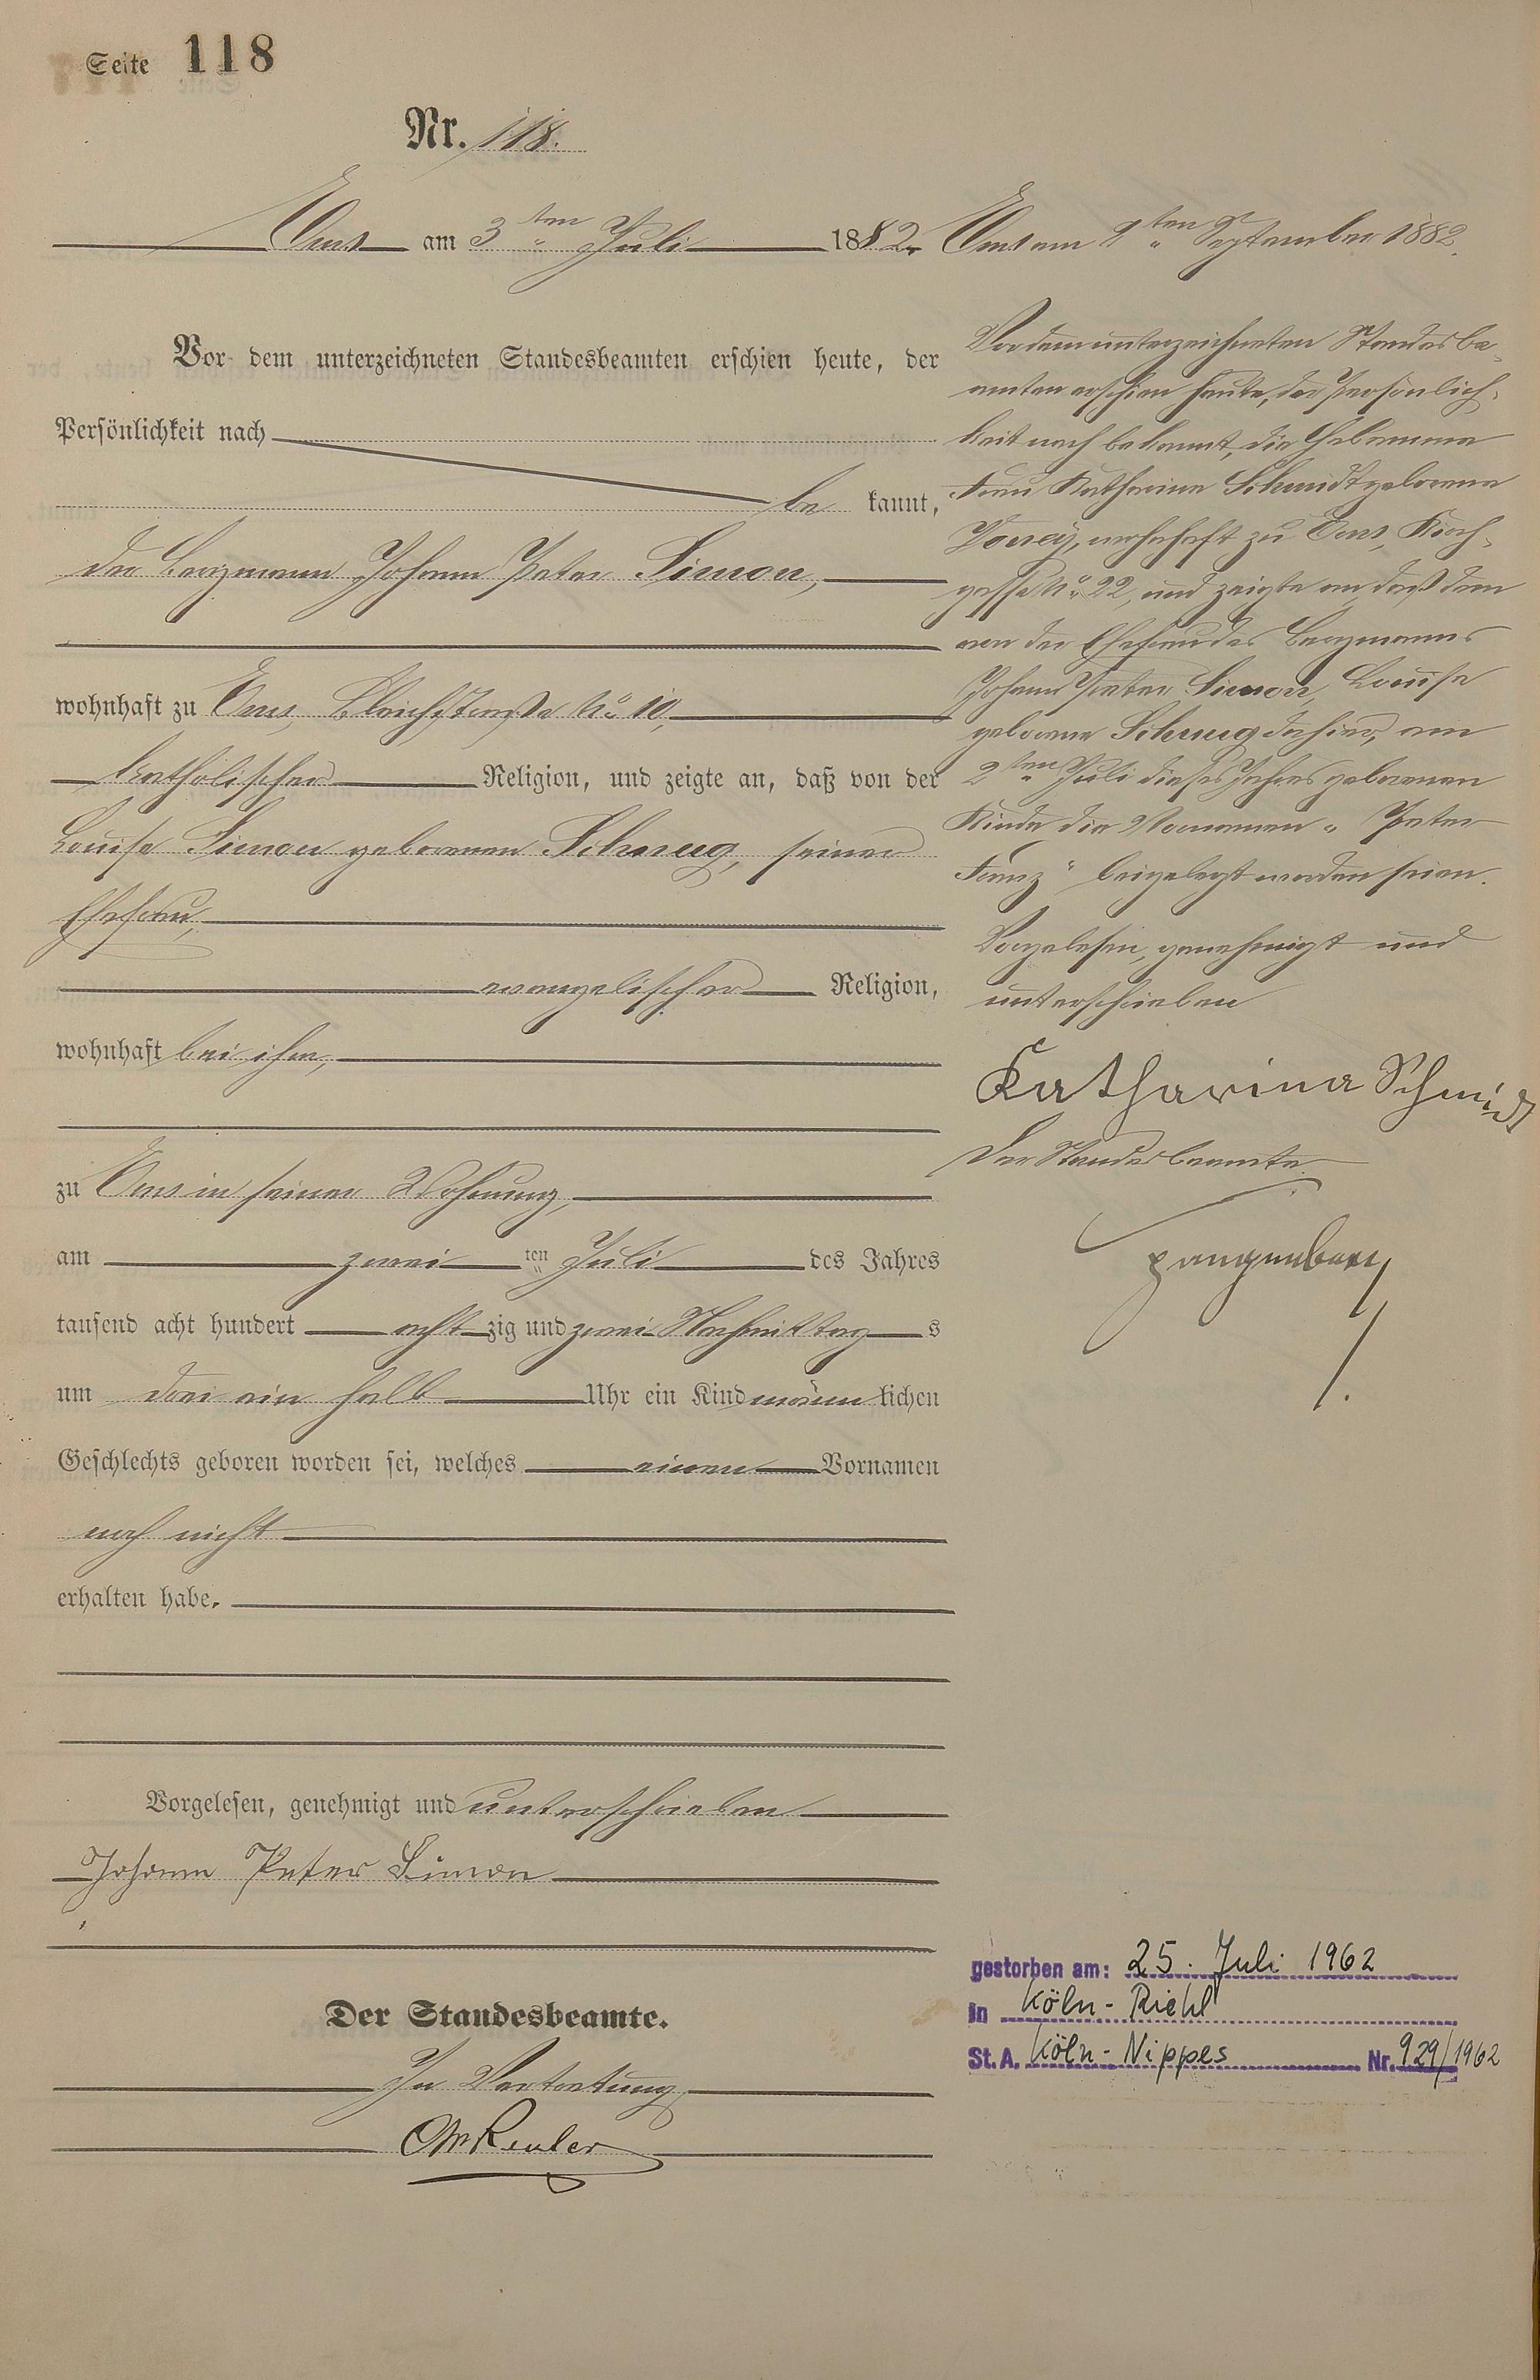 Seite 118
Nr. 118.
Ems am 3ten Juli 1882.
Vor dem unterzeichneten Standesbeamten erschien heute, der
Persönlichkeit nach
be kannt,
der Bergmann Johann Peter Simon,
wohnhaft zu Ems, Bleichstraße No 10,
katholischer Religion, und zeigte an, daß von der
Louise Simon geborenen Schmug, seiner
Ehefrau,
evangelischer Religion,
wohnhaft bei ihm,
zu Ems in seiner Wohnung,
am zwei ten Juli des Jahres
tausend acht hundert acht zig und zwei Nachmittag s
um drei ein halb Uhr ein Kind männ lichen
Geschlechts geboren worden sei, welches einen Vornamen
noch nicht
erhalten habe.
Vorgelesen, genehmigt und unterschrieben
Johann Peter Simon
Der Standesbeamte.
In Vertretung
Ems am ten September 1882.
Vor dem unterzeichneten Standesbe-
amten erschien heute, der Persönlich-
keit nach bekannt, die Hebamme
Frau Katharina Schmidt geborene
wohnhaft zu Ems, Kirch-
gasse No 22, und zeigte an, daß dem
von der Ehefrau des Bergmanns
Johann Peter Simon, Louise
geborene Schmug dahier, am
2ten Juli dieses Jahres geborenen
Kinde die Vornamen „Peter
Franz“ beigelegt worden seien.
Vorgelesen, genehmigt und
unterschrieben
Katharina Schmidt
Der Standesbeamte
gestorben am: 25. Juli 1962
in Köln-Riehl
St.A. Köln-Nippes Nr. 929/1962